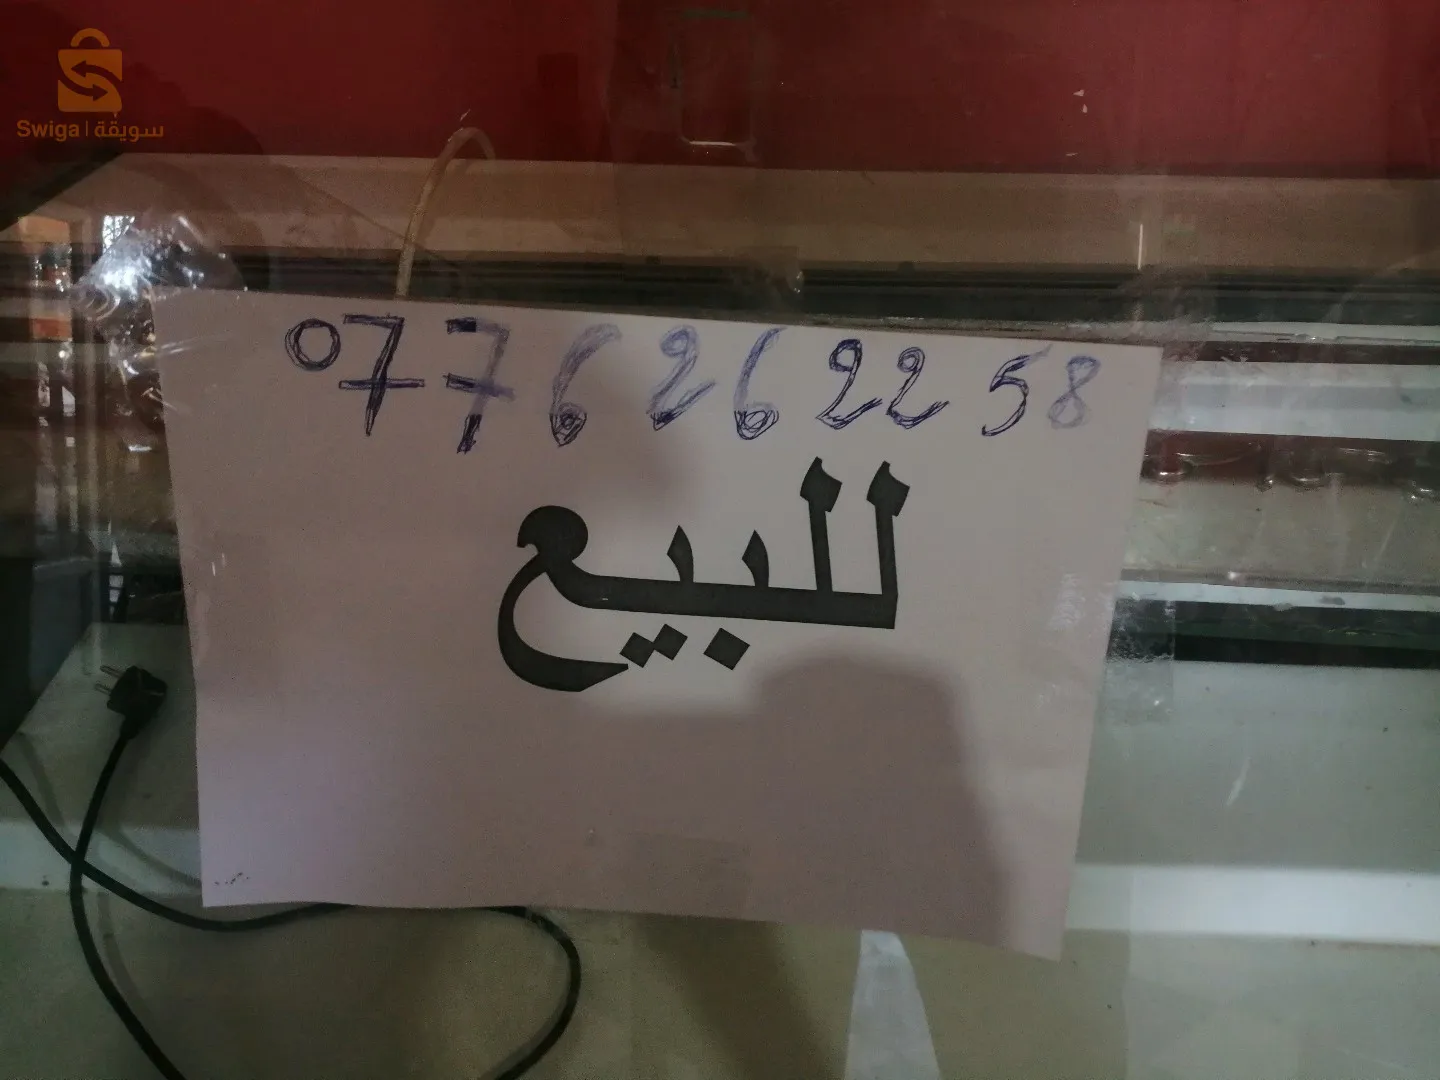 Swiga | سويقة
0776262258
للبيع